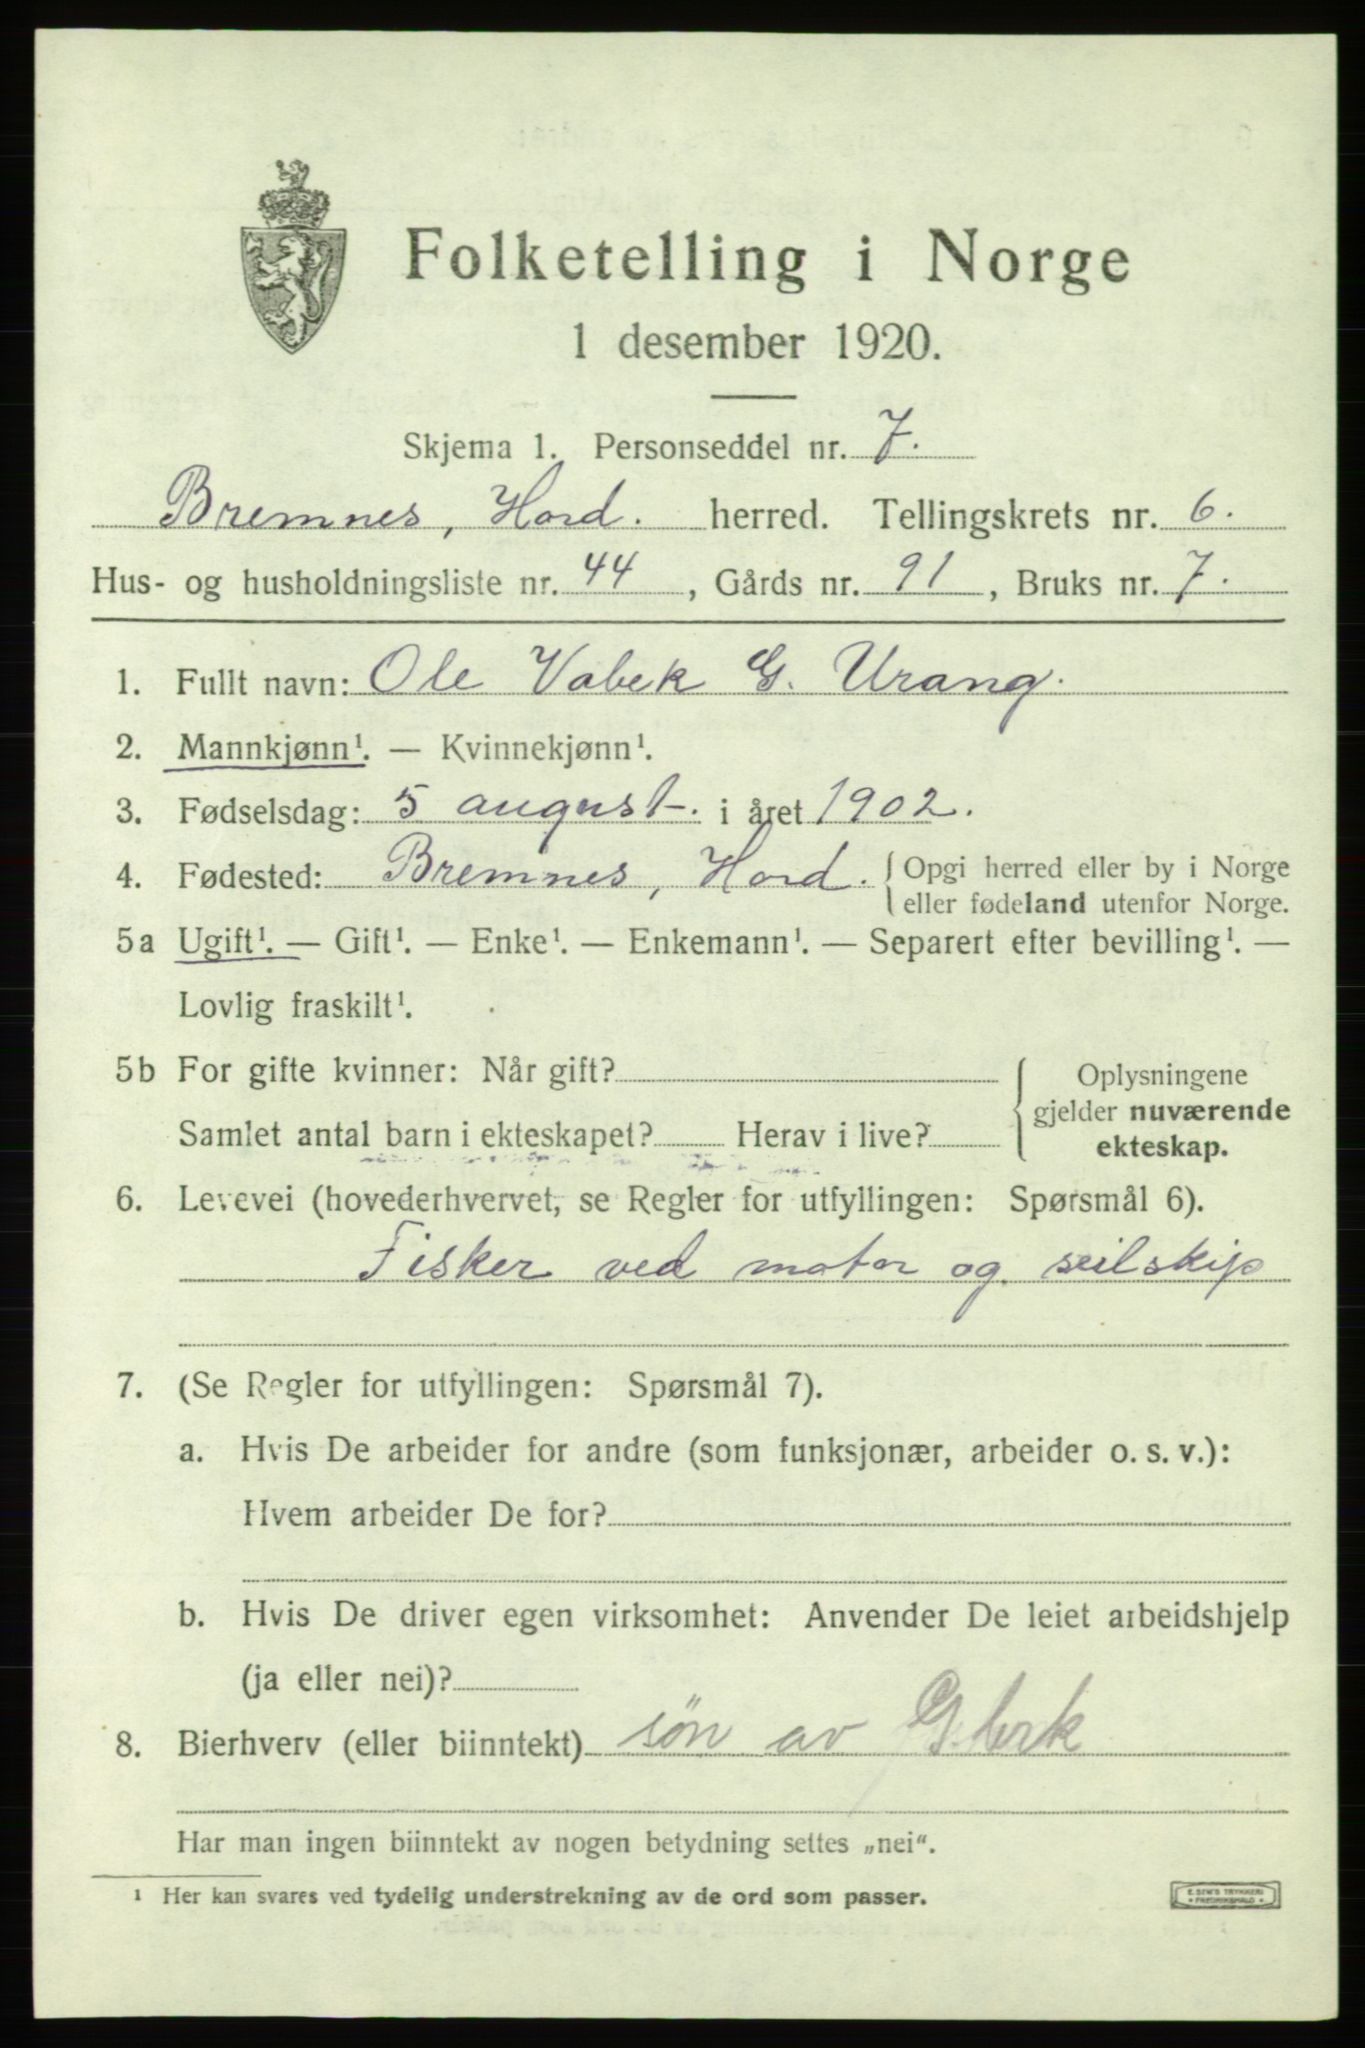 Folketelling i Norge
1 desember 1920.
Skjema 1. Personseddel nr. 7.
Bremnes, Hord. herred. Tellingskrets nr. 6.
Hus- og husholdningsliste nr. 44, Gårds nr. 91, Bruks nr. 7.
1. Fullt navn: Ole Vabek G. Urang.
2. Mannkjønn¹. — Kvinnekjønn¹.
3. Fødselsdag: 5 august. i året 1902.
4. Fødested: Bremnes, Hord. { Opgi herred eller by i Norge
eller fødeland utenfor Norge.
5a Ugift¹. — Gift¹. — Enke¹. — Enkemann¹. — Separert efter bevilling¹. —
Lovlig fraskilt¹.
5b For gifte kvinner: Når gift?
Samlet antal barn i ekteskapet? Herav i live?
{ Oplysningene
gjelder nuværende
ekteskap.
6. Levevei (hovederhvervet, se Regler for utfyllingen: Spørsmål 6).
Fisker ved motor og seilskip
7. (Se Regler for utfyllingen: Spørsmål 7).
a. Hvis De arbeider for andre (som funksjonær, arbeider o. s. v.):
Hvem arbeider De for?
b. Hvis De driver egen virksomhet: Anvender De leiet arbeidshjelp
(ja eller nei)?
8. Bierhverv (eller biinntekt) søn av
Har man ingen biinntekt av nogen betydning settes „nei“.
¹ Her kan svares ved tydelig understrekning av de ord som passer.
E. SEM'S TRYKKERI
• FREDRIKSHALD •